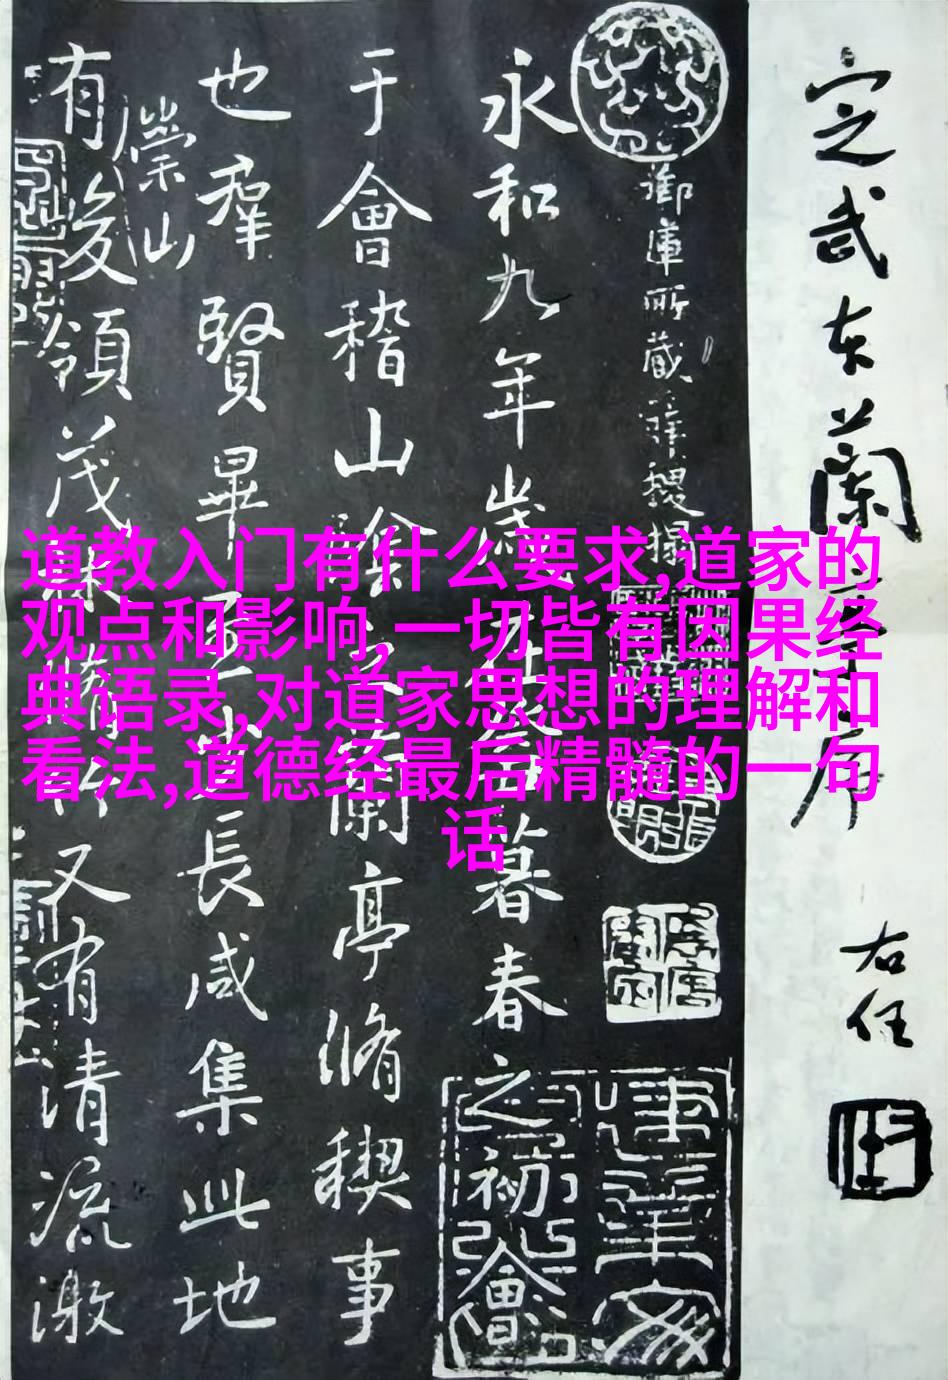 定武本蘭亭序
右任
御庫所藏薛稷搨
永和九年歲在癸丑暮春之初會
于會稽山陰之蘭亭脩稧事
也羣賢畢至少長咸集此地
崇山
有峻領茂林脩竹又有清流激
道教入门有什么要求,道家的
观点和影响,一切皆有因果经
典语录,对道家思想的理解和
看法,道德经最后精髓的一句
话